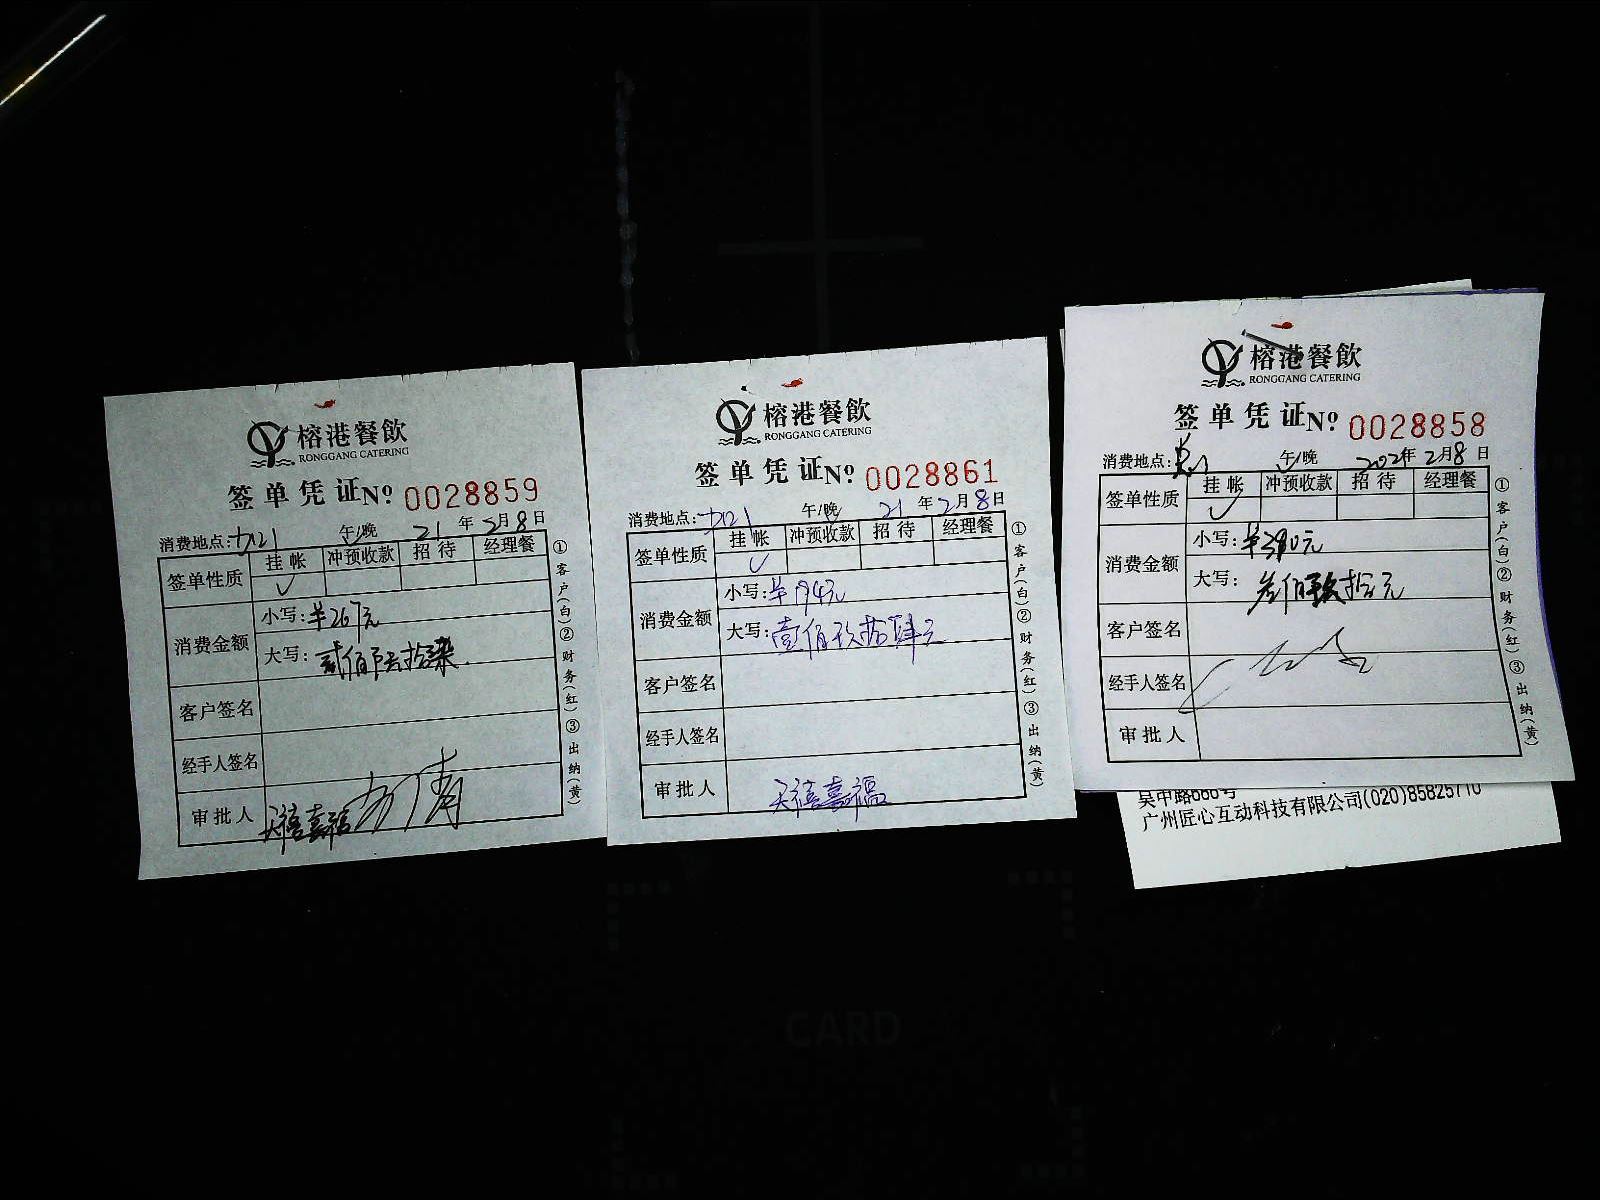 榕港餐飲
RONGGANG CATERING
签单凭证№ 0028859
消费地点: 午/晚 21年2月8日
签单性质 挂帐 冲预收款 招待 经理餐
✓
消费金额 小写:¥267元
大写:贰佰陆拾柒
客户签名
经手人签名
审批人 天禧嘉福
①客户(白)②财务(红)③出纳(黄)
榕港餐飲
RONGGANG CATERING
签单凭证№ 0028861
消费地点: 午/晚 21年2月8日
签单性质 挂帐 冲预收款 招待 经理餐
✓
消费金额 小写:¥194元
大写:壹佰玖拾肆元
客户签名
经手人签名
审批人 天禧嘉福
①客户(白)②财务(红)③出纳(黄)
榕港餐飲
RONGGANG CATERING
签单凭证№ 0028858
消费地点: 午/晚 2021年2月8日
签单性质 挂帐 冲预收款 招待 经理餐
✓
消费金额 小写:¥390元
大写:叁佰玖拾元
客户签名
经手人签名
审批人
①客户(白)②财务(红)③出纳(黄)
吴中路666号
广州匠心互动科技有限公司(020)85825710
CARD